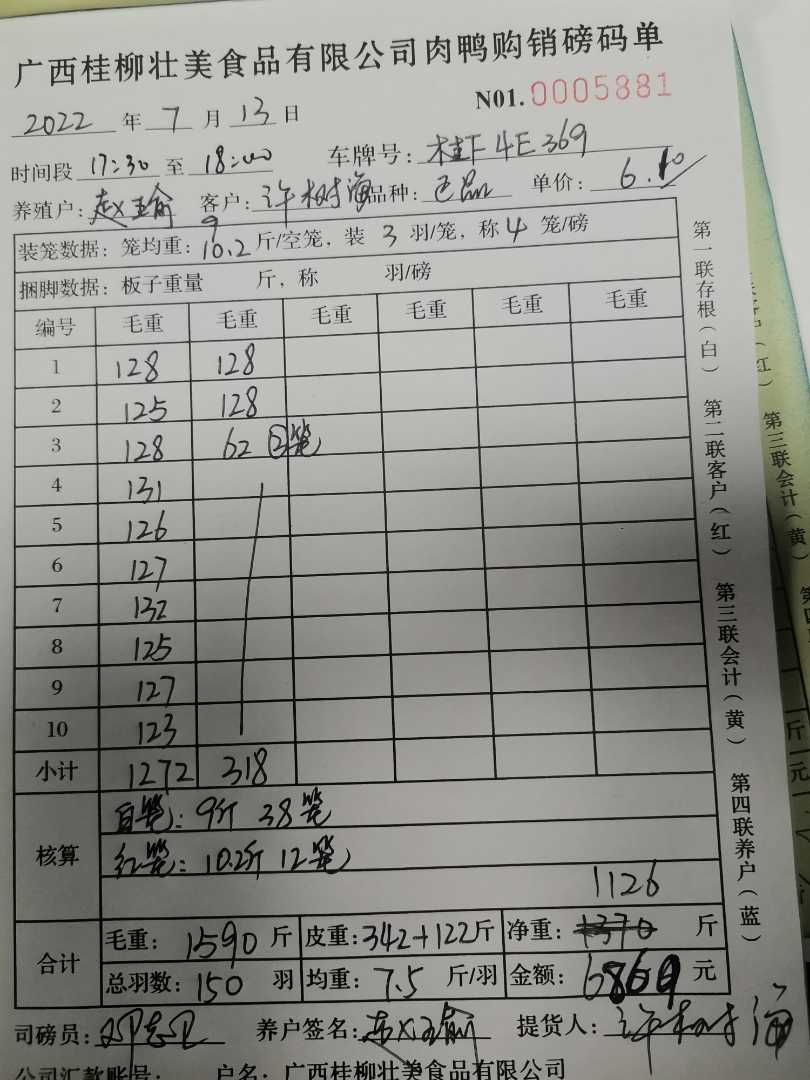 广西桂柳壮美食品有限公司肉鸭购销磅码单
N01.0005881
2022 年 7 月 13 日
时间段 17:30 至 18:00 车牌号: 桂F4E369
养殖户: 赵玉瑜 客户: 许树海 品种: 单价: 6.10
装笼数据: 笼均重: 9 10.2 斤/空笼, 装 3 羽/笼, 称 4 笼/磅
捆脚数据: 板子重量 斤, 称 羽/磅
编号 毛重 毛重 毛重 毛重 毛重 毛重
1 128 128
2 125 128
3 128 62 ②笼
4 131
5 126
6 127
7 132
8 125
9 127
10 123
小计 1272 318
核算
白笼: 9斤 38笼
红笼: 10.2斤 12笼
1126
合计
毛重: 1590 斤 皮重: 342+122斤 净重: 1370 斤
总羽数: 150 羽 均重: 7.5 斤/羽 金额: 6869 元
司磅员: 养户签名: 赵玉瑜 提货人: 许树海
公司汇款账号: 户名: 广西桂柳壮美食品有限公司
第一联存根(白) 第二联客户(红) 第三联会计(黄) 第四联养户(蓝)
(红) 第三联会计(黄)
斤
元